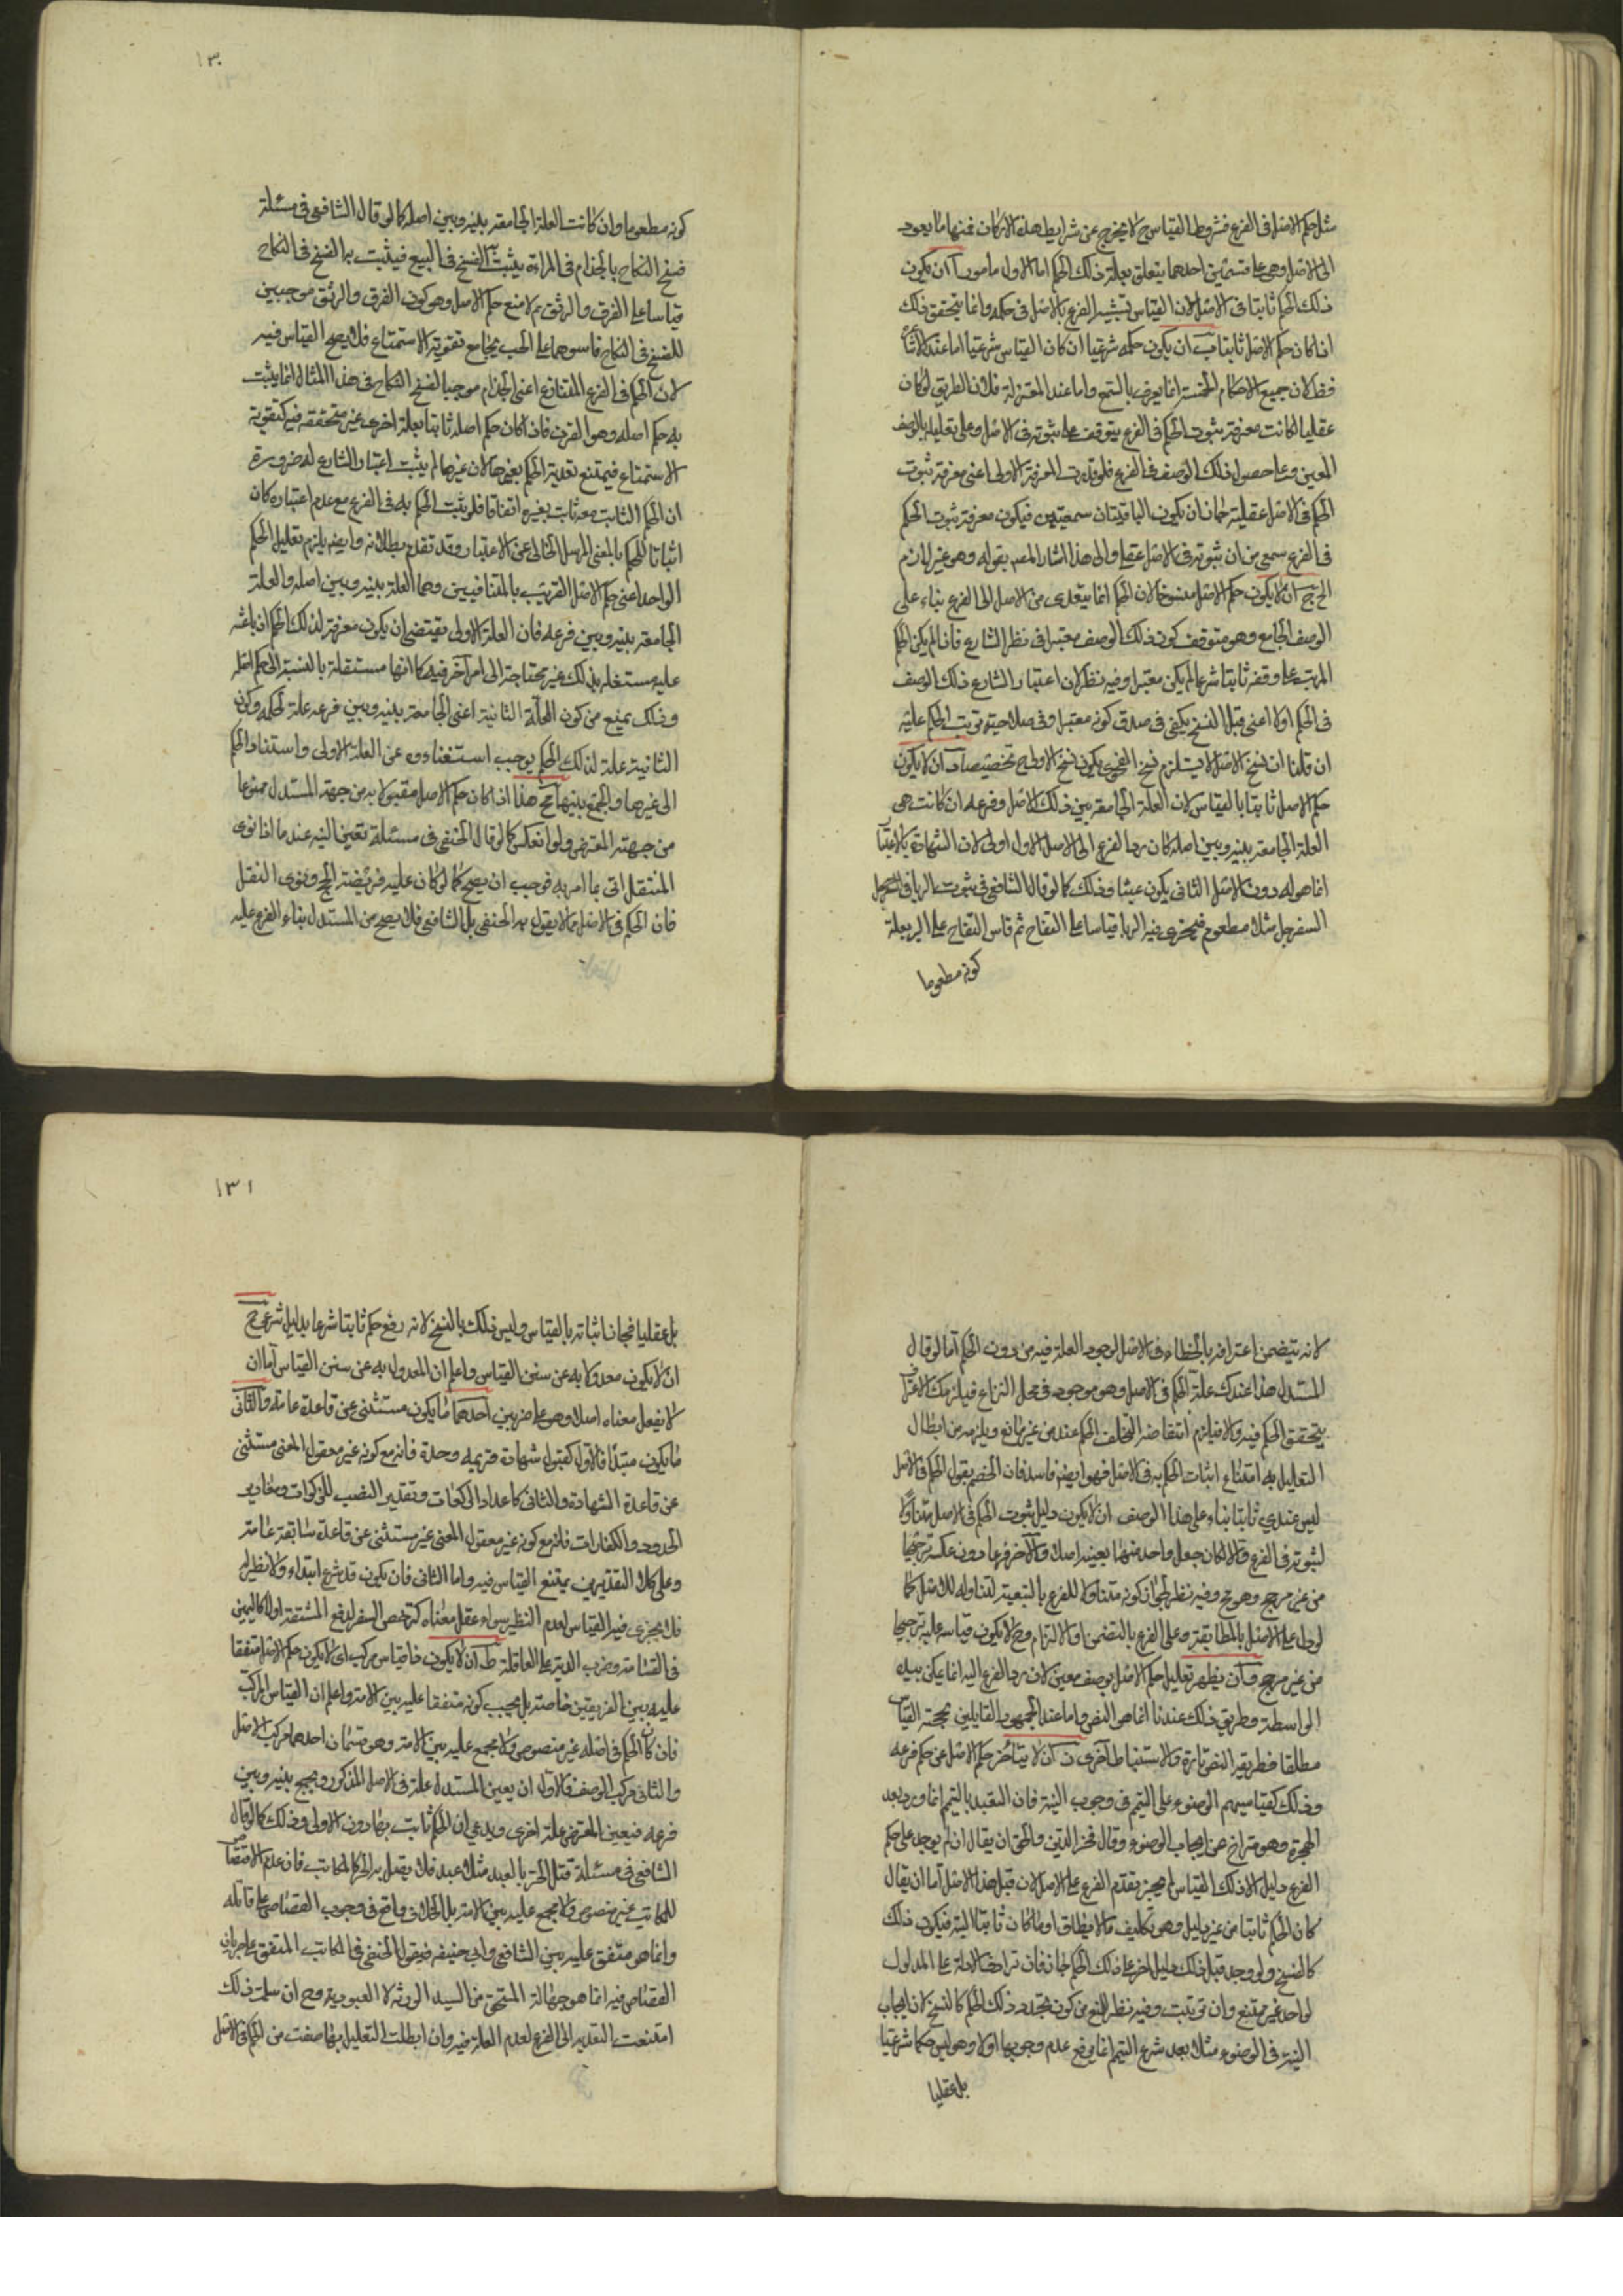 مثل حكم الاصل فى الفرع فشروط القياس ح لا يخرج عن شرايط هذه الاركان فمنها ما يعود
الى الاصل وهى على قسمين احدهما يتعلق بعلة ذلك الحكم اما الاول فامور آ ان يكون
ذلك الحكم ثابتا فى الاصل لان القياس تشبيه الفرع بالاصل فى حكمه وانما يتحقق ذلك
اذا كان حكم الاصل ثابتا ب ان يكون حكمه شرعيا ان كان القياس شرعيا اما عند الاشاعرة
فظ لان جميع الاحكام الخمسة انما يعرف بالسمع واما عند المعتزلة فلان الطريق لو كان
عقليا لكانت معرفة ثبوت الحكم فى الفرع يتوقف على ثبوته فى الاصل وعلى تعليله بالوصف
المعين وعلى حصول ذلك الوصف فى الفرع فلو قدرت المعرفة الاولى اعنى معرفة ثبوت
الحكم فى الاصل عقلية جاز ان يكون الباقيتان سمعيتين فيكون معرفة ثبوت الحكم
فى الفرع سمعى من ان ثبوته فى الاصل عقلى والى هذا اشار المصنف بقوله وهو غير لازم
الخ ج ان لا يكون حكم الاصل منسوخا لان الحكم انما يتعدى من الاصل الى الفرع بناء على
الوصف الجامع وهو متوقف كون ذلك الوصف معتبرا فى نظر الشارع فاذا لم يكن الحكم
المرتب على وفقه ثابتا شرعا لم يكن معتبرا وفيه نظر لان اعتبار الشارع ذلك الوصف
فى الحكم اولا اعنى قبل النسخ يكفى فى صدق كونه معتبرا وفى صلاحيته ترتب الحكم عليه
ان قلنا ان نسخ الاصل لا يستلزم نسخ الفحوى يكون نسخ الاول ح تخصيصا د ان لا يكون
حكم الاصل ثابتا بالقياس لان العلة الجامعة بين ذلك الاصل وفرعه ان كانت هى
العلة الجامعة بينه وبين اصله كان رد الفرع الى الاصل الاول اولى لان الشهادة بالاعتبار
انما هو له دون الاصل الثانى يكون عبثا وذلك كما لو قال الشافعى فى ثبوت الربا فى السفرجل
السفرجل مثلا مطعوم فيجرى فيه الربا قياسا على التفاح ثم قاس التفاح على البر بعلة
كونه مطعوما
١٣٠
كونه مطعوما وان كانت العلة الجامعة بينه وبين اصله كما لو قال الشافعى فى مسئلة
فسخ النكاح بالجذام فى المراة يثبت الفسخ فى البيع فيثبت به الفسخ فى النكاح
قياسا على القرن والرتق ثم لا منع حكم الاصل وهو كون القرن والرتق موجبين
للفسخ فى النكاح قاسوهما على الجب بجامع تفويت الاستمتاع فلا يصح القياس فيه
لان الحكم فى الفرع المتنازع اعنى الجذام موجبا لفسخ النكاح فى هذا المثال انما يثبت
به حكم اصله وهو القرن فاذا كان حكم اصله ثابتا بعلة اخرى غير متحققة فيه كتفويت
الاستمتاع فيمتنع تعدية الحكم بغيرها لان غيرها لم يثبت اعتبار الشارع له ضرورة
ان الحكم الثابت معه ثابت بغيره اتفاقا فلو ثبت الحكم به فى الفرع مع عدم اعتباره كان
اثباتا للحكم بالمعنى المرسل الخالى عن الاعتبار وقد تقدم بطلانه وايضا يلزم تعليل الحكم
الواحد اعنى حكم الاصل القريب بالمتنافيين وهما العلة بينه وبين اصله والعلة
الجامعة بينه وبين فرعه فان العلة الاولى يقتضى ان يكون معرفة لذلك الحكم او باعثه
عليه مستقلة بذلك غير محتاجة الى امر آخر فيه كما انها مستقلة بالنسبة الى حكم اصله
وذلك يمنع من كون العلة الثانية اعنى الجامعة بينه وبين فرعه علة لحكمه وكون
الثانية علة لذلك الحكم يوجب استغناءه عن العلة الاولى واستناد الحكم
الى غيرها والجمع بينهما مح هذا اذا كان حكم الاصل مقبولا به من جهة المستدل ممنوعا
من جهة المعترض ولو انعكس كما لو قال الحنفى فى مسئلة تعين النية عندما اذا نوى
المتنفل اتى بما امر به فوجب ان يصح كما لو كان عليه فريضة الحج ونوى النفل
فان الحكم فى الاصل مما لا يقول به الحنفى بل الشافعى فلا يصح من المستدل بناء الفرع عليه
لانه يتضمن اعترافه بالخطاء فى الاصل لوجود العلة فيه من دون الحكم اما لو قال
المستدل هذا عندك علة الحكم فى الاصل وهو موجود فى محل النزاع فيلزمك الاعتراف
بتحقق الحكم فيه والا فيلزم انتقاضه لتخلف الحكم عنه من غير مانع ويلزمه من ابطال
التعليل به امتناع اثبات الحكم به فى الاصل فهو ايضا فاسد فان الخصم يقول الحكم فى الاصل
ليس عندى ثابتا بناء على هذا الوصف ان لا يكون دليل ثبوت الحكم فى الاصل متناولا
لثبوته فى الفرع والا لكان جعل واحد منهما بعينه اصلا والآخر فرعا دون عكسه ترجيحا
من غير مرجح وهو مح وفيه نظر لجواز كونه متناولا للفرع بالتبعية لتناوله للاصل كما
لو دل على الاصل بالمطابقة وعلى الفرع بالتضمن او الالتزام وح لا يكون قياسه عليه ترجيحا
من غير مرجح و ان يظهر تعليل حكم الاصل بوصف معين لان رد الفرع اليه انما يمكن بهذه
الواسطة وطريق ذلك عندنا انما هو النص واما عند الجمهور القايلين بحجة القياس
مطلقا فطريقه النص تارة والاستنباط اخرى ز ان لا يتاخر حكم الاصل عن حكم فرعه
وذلك كقياسهم الوضوء على التيمم فى وجوب النية فان التعبد بالتيمم انما ورد بعد
الهجرة وهو متراخ عن ايجاب الوضوء وقال فخر الدين والحق ان يقال ان لم يوجد على حكم
الفرع دليل الا ذلك القياس لم يجز تقدم الفرع على الاصل لان قبل هذا الاصل اما ان يقال
كان الحكم ثابتا من غير دليل وهو تكليف ما لا يطاق او ما كان ثابتا البتة فيكون ذلك
كالنسخ ولو وجد قبل ذلك دليل اخر على ذلك الحكم لجاز فان ترادف الادلة على المدلول
الواحد غير ممتنع وان ترتبت وفيه نظر للمنع من كون تجدد ذلك الحكم كالنسخ لان ايجاب
النية فى الوضوء مثلا بعد شرع التيمم انما يرفع عدم وجوبها اولا وهو ليس حكما شرعيا
بل عقليا
١٣١
بل عقليا فجاز اثباته بالقياس وليس ذلك بالنسخ لانه رفع حكم ثابتا شرعا بدليل شرعى ح
ان لا يكون معدولا به عن سنن القياس واعلم ان المعدول به عن سنن القياس اما ان
لا يعقل معناه اصلا وهو على ضربين احدهما ما يكون مستثنى عن قاعدة عامة والثانى
ما يكون مبتدأ فالاول كقبول شهادة خزيمة وحده فانه مع كونه غير معقول المعنى مستثنى
عن قاعدة الشهادة والثانى كاعداد الركعات وتقدير النصب للزكوات ومقادير
الحدود والكفارات فانه مع كونه غير معقول المعنى غير مستثنى عن قاعدة سابقة عامة
وعلى كلا التقديرين يمتنع القياس فيه واما الثانى فان يكون قد شرع ابتداء ولا نظير له
فلا يجرى فيه القياس لعدم النظير سواء عقل معناه كرخص السفر لدفع المشقة اولا كاليمين
فى القسامة وضرب الدية على العاقلة ط ان لا يكون ذا قياس مركب اى لا يكون حكم الاصل متفقا
عليه بين الفريقين خاصة بل يجب كونه متفقا عليه بين الامة واعلم ان القياس المركب
فان كان الحكم فى اصله غير منصوص ولا مجمع عليه بين الامة وهو قسمان احدهما مركب الاصل
والثانى مركب الوصف فالاول ان يعين المستدل علة فى الاصل المذكور ويجمع بينه وبين
فرعه فيعين المعترض علة اخرى ويدعى ان الحكم ثابت بها دون الاولى وذلك كما لو قال
الشافعى فى مسئلة قتل الحر بالعبد مثلا عبد فلا يقتل به الحر كالمكاتب فان عدم الاقتصاص
للمكاتب غير منصوص ولا مجمع عليه بين الامة بل الخلاف واقع فى وجوب القصاص على قاتله
وانما هو متفق عليه بين الشافعى وابى حنيفه فيقول الحنفى فى المكاتب المتفق على جريان
القصاص فيه انما هو جهالة المستحق من السيد الورثة لا العبودية وح ان سلمت ذلك
امتنعت التعدية الى الفرع لعدم العلة فيه وان ابطلت التعليل بها منعت من الحكم فى الاصل